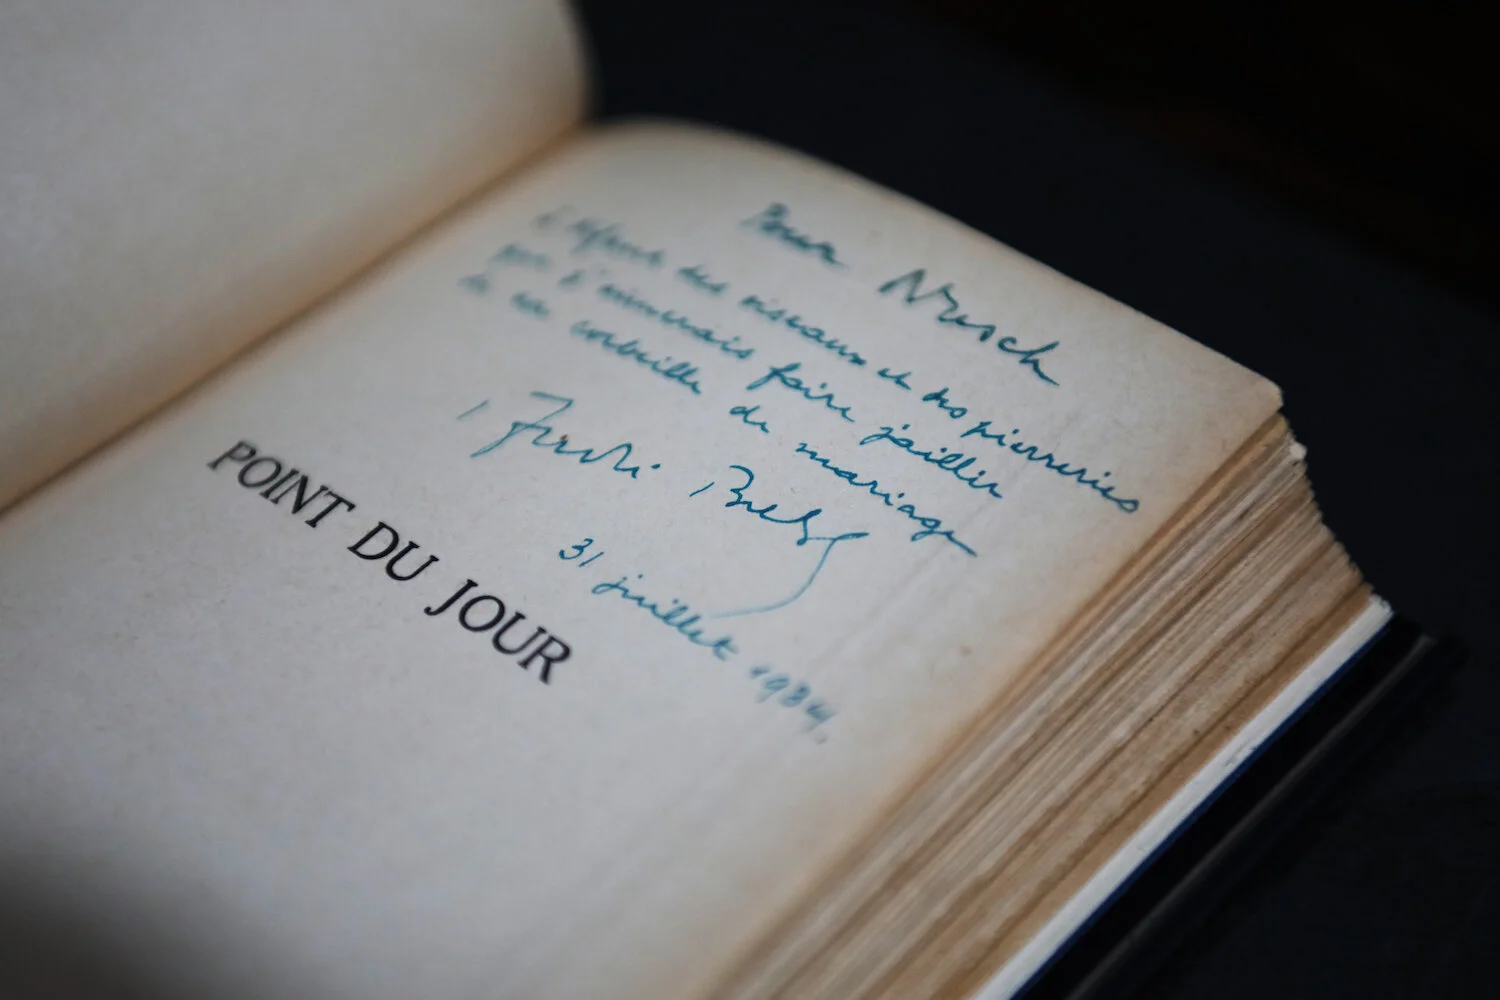 Pour Nusch
des oiseaux et des pierreries
que j'aimerais faire jaillir
de sa corbeille de mariage
André Breton
31 juillet 1934.
POINT DU JOUR